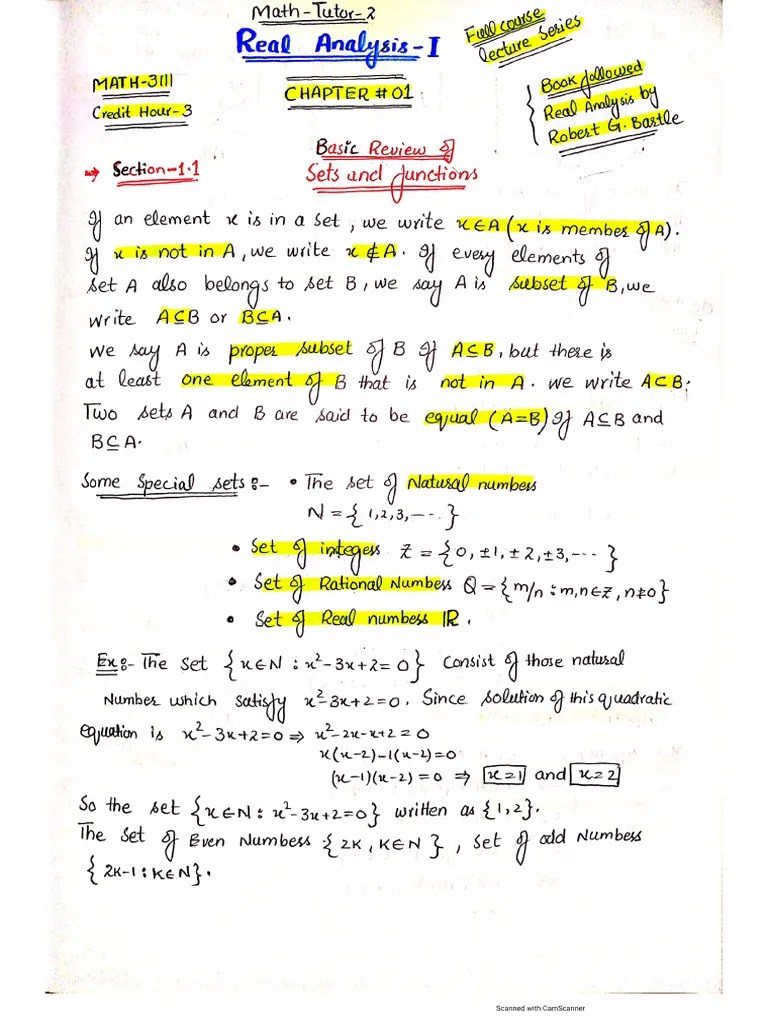 Math-Tutor-2
Real Analysis-I
Full course
lecture Series
MATH-3111
Credit Hour-3
CHAPTER # 01
Book followed
Real Analysis by
Robert G. Bartle
Basic Review of
→ Section-1.1
Sets and functions
If an element x is in a set, we write x∈A (x is member of A).
If x is not in A, we write x∉A. If every elements of
set A also belongs to set B, we say A is subset of B, we
write A⊆B or B⊆A.
We say A is proper subset of B If A⊆B, but there is
at least one element of B that is not in A. we write A⊂B.
Two sets A and B are said to be equal (A=B) If A⊆B and
B⊆A.
Some Special sets:- • The set of Natural numbers
N = {1,2,3,-...}
• Set of integers Z = {0, ±1, ±2, ±3,--..}
• Set of Rational Numbers Q = {m/n : m,n∈Z, n≠0}
• Set of Real numbers IR.
Ex:- The set {x∈N : x²-3x+2=0} Consist of those natural
Number which satisfy x²-3x+2=0. Since solution of this quadratic
equation is x²-3x+2=0 ⇒ x²-2x-x+2=0
x(x-2)-1(x-2)=0
(x-1)(x-2)=0 ⇒ x=1 and x=2
So the set {x∈N : x²-3x+2=0} written as {1,2}.
The Set of Even Numbers {2K, K∈N}, Set of odd Numbers
{2K-1 : K∈N}.
Scanned with CamScanner